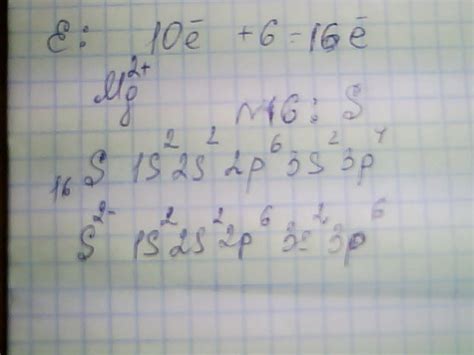 E: 10ē + 6 = 16ē
Mg²⁺
№16: S
₁₆S 1S² 2S² 2p⁶ 3S² 3p⁴
S²⁻ 1S² 2S² 2p⁶ 3S² 3p⁶